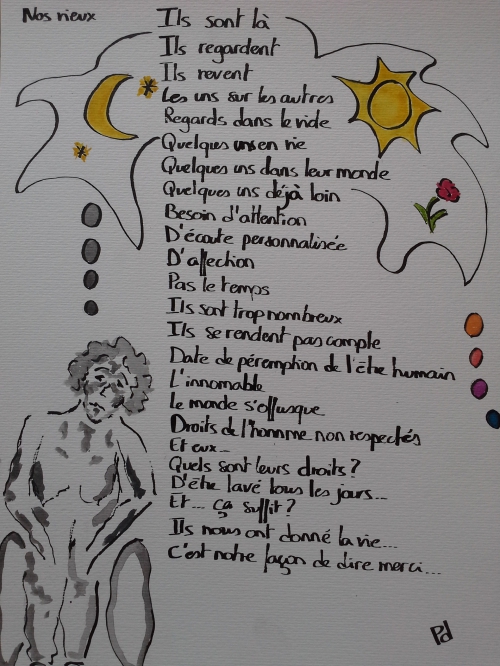 Nos vieux
Ils sont là
Ils regardent
Ils revent
Les uns sur les autres
Regards dans le vide
Quelques uns en vie
Quelques uns dans leur monde
Quelques uns déjà loin
Besoin d'attention
D'écoute personnalisée
D'affection
Pas le temps
Ils sont trop nombreux
Ils se rendent pas compte
Date de péremption de l'être humain
L'innomable
Le monde s'offusque
Droits de l'homme non respectés
Et eux...
Quels sont leurs droits ?
D'être lavé tous les jours...
Et... ça suffit ?
Ils nous ont donné la vie...
C'est notre façon de dire merci...
Pd